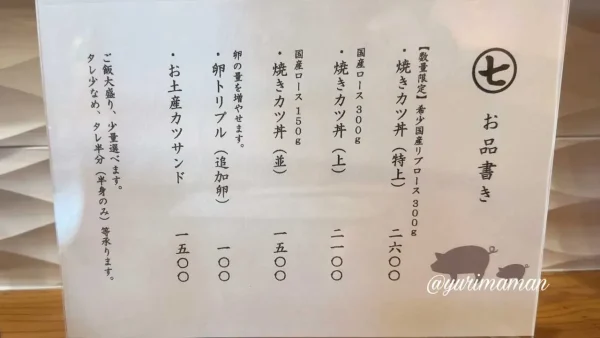 七
お品書き
【数量限定】希少国産リブロース300g
・焼きカツ丼（特上） 二六〇〇
国産ロース300g
・焼きカツ丼（上） 二一〇〇
国産ロース150g
・焼きカツ丼（並） 一五〇〇
卵の量を増やせます。
・卵トリプル（追加卵） 一〇〇
・お土産カツサンド 一五〇〇
ご飯大盛り、少量選べます。
タレ少なめ、タレ半分（半身のみ）等承ります。
@yurimaman